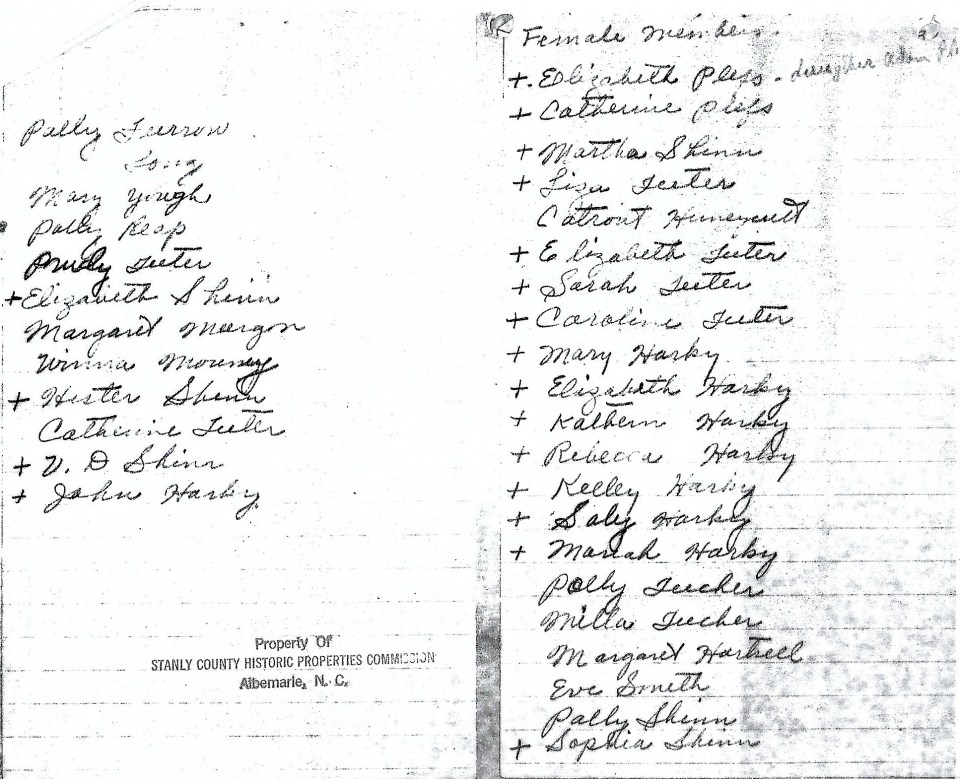 Polly Furrow
Long
Mary Yough
Polly Reap
Prudy Teeter
+ Elizabeth Shinn
Margaret Morgon
Winna Mouney
+ Hester Shinn
Catherine Teeter
+ V. D Shinn
+ John Harky
Property Of
STANLY COUNTY HISTORIC PROPERTIES COMMISSION
Albemarle, N. C.
Female Members
+ Elizabeth Pless - daughter Adam
+ Catherine Pless
+ Martha Shinn
+ Liza Teeter
Catrout Huneycutt
+ Elizabeth Teeter
+ Sarah Teeter
+ Caroline Teeter
+ Mary Harky
+ Elizabeth Harky
+ Kathern Harky
+ Rebecca Harky
+ Kelley Harky
+ Saly Harky
+ Mariah Harky
Polly Tucher
Milla Tucher
Margaret Hartsell
Eve Smith
Polly Shinn
+ Sophia Shinn